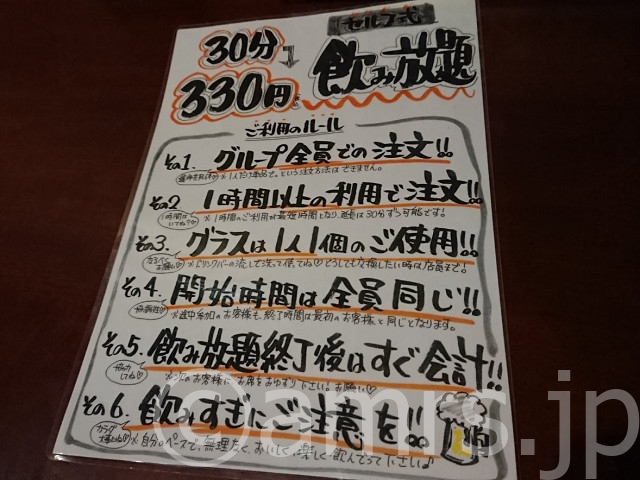 セルフ式
30分
330円
飲み放題
ご利用のルール
その1. グループ全員での注文!!
※1人だけ単品で。という注文方法はできません。
その2 1時間以上の利用で注文!!
1時間は
※1時間のご利用が最短時間となり、延長は30分ずつ可能です。
その3. グラスは1人1個のご使用!!
※ドリンクバーの流しで洗って使ってね♡どうしても交換したい時は店員まで!
その4. 開始時間は全員同じ!!
※途中参加のお客様も、終了時間は最初のお客様と同じとなります。
その5. 飲み放題終了後はすぐ会計!!
協力してね♡
※次のお客様にお席をおゆずり下さい。お願い♡
その6. 飲みすぎにご注意を!!
※自分のペースで、無理なく、おいしく楽しく飲んでって下さい♪
@amrs.jp